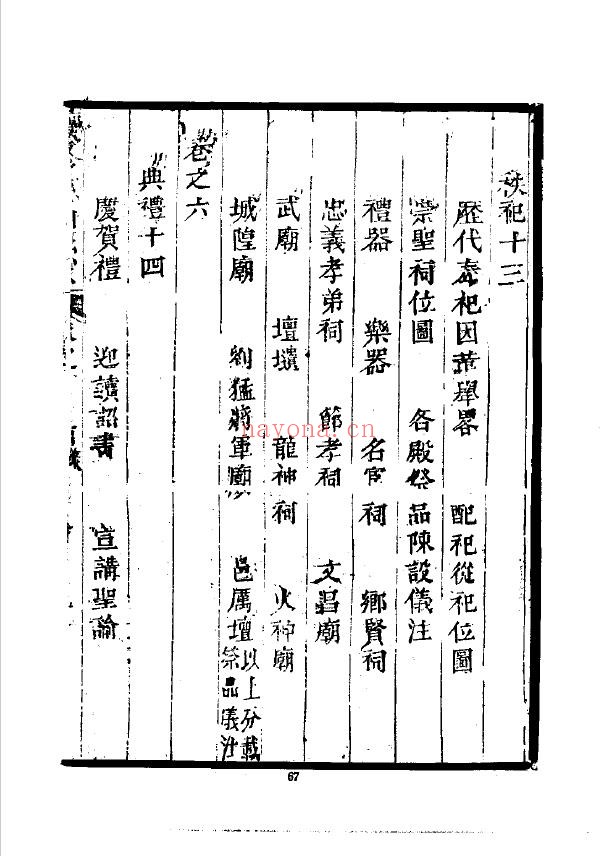 秩祀十三
歷代秦祀因革舉畧 配祀從祀位圖
崇聖祠位圖 各殿祭品陳設儀注
禮器 樂器 名宦祠 鄉賢祠
忠義孝弟祠 節孝祠 文昌廟
武廟 壇壝 龍神祠 火神廟
城隍廟 劉猛將軍廟 邑厲壇 以上分載祭品儀注
卷之六
典禮十四
慶賀禮 迎讀詔書 宣講聖諭
nayona.cn
67